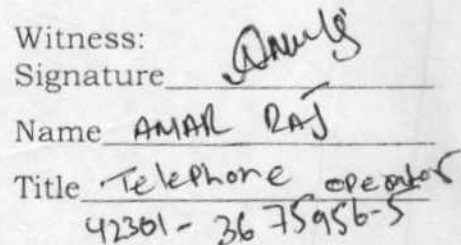 Witness:
Signature
Name AMAR RAJ
Title Telephone operator
42301-3675956-5